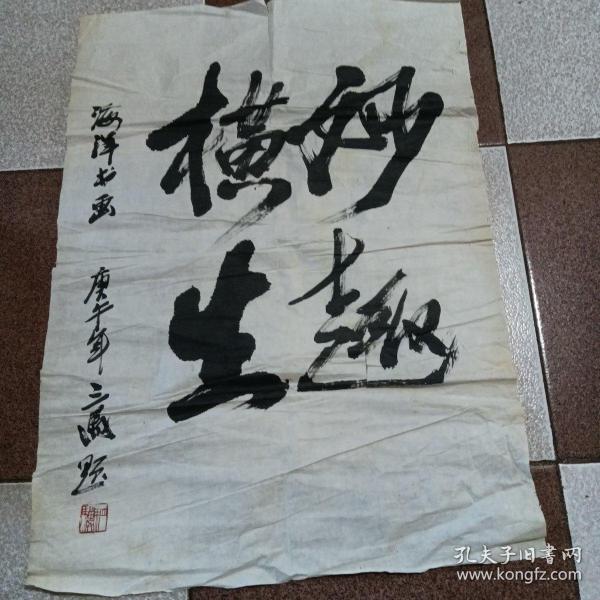 妙趣
横生
海洋书画 庚午年 三
孔夫子旧书网
www.kongfz.com